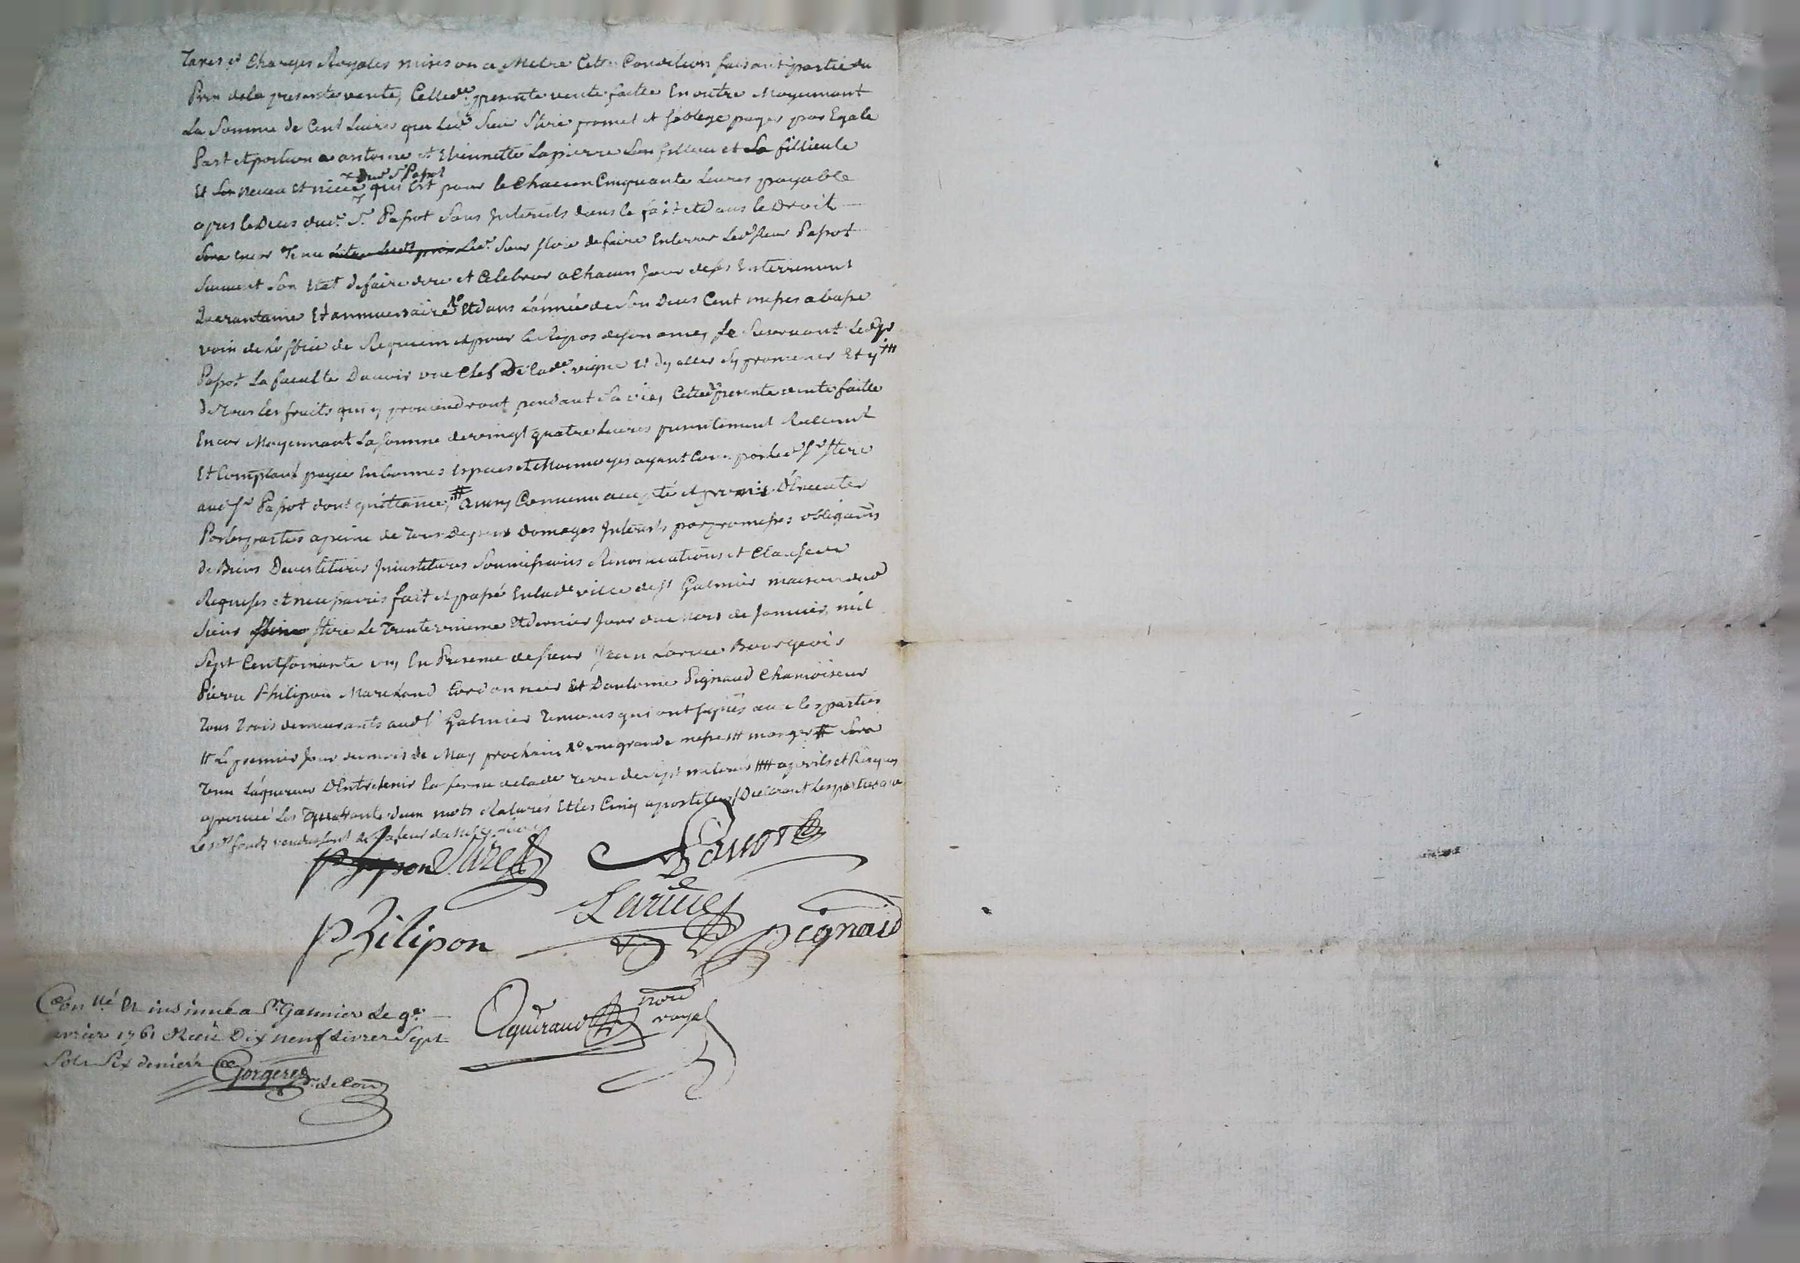 Taxes et Charges Royales mises ou a Metre Cette Condition faisant partie du
Prix de la presente vente, Cette de. presente vente faitte En outre Moyennant
La Somme de Cent Livres que Led. Sieur Stire promet et soblege payer par Egale
Part et portion a antoine et Thiennette Lapierre Son filleu et Sa fillieule
dud. Sr. Papot
Et Son neveu et niece qui Est pour le Chacun Cinquante Livres payable
apres le Deces dud. Sr. Papot Sans Interests dans le fait et dans le Droit
Sera encor Tenu Led. Sieur Stire de faire Enterrer Led. Sieur Papot
Suivant Son Etat De faire dire et Celebrer a Chacun Jour de ses Enterrement
Quarantaine Et anniversaire Et dans L'année de Son Deces Cent messes a basse
voix de Loffice de Requiem et pour le Repos de Son ame, Se Reservant Led. Sr
Papot La faculté Davoir une Clef De Lade. vigne Et Dy aller Sy promener Et y
De Tous les fruits qui y proviendront pendant Sa vie, Cette de. presente vente faitte
Encor Moyennant La Somme de vingt quatre Livres presentement Reellement
Et Comptant payée En bonnes Especes et Monnoyes ayant Cour par led. Sr. Stire
aud. Sr. Papot dont quittance, # Ainsy Convenu accepté et promis D'Executer
Par les parties a peine de Tous Depens Domages Interests par promesses obligations
de Biens Devestitures Investitures Soumissions Renonciations et Clauses
Requises et necessaires fait et passé En lade ville de St Galmier maison dud
Sieur Stire Le Trente unieme Et dernier Jour du Mois de Janvier mil
Sept Cent Soixante un, En Presence de Sieur Jean Larue Bourgeois
Pierre Philipon Marchand Cordonnier Et D'antoine Pignaud Chamoiseur
Tous Trois demeurants aud. St Galmier Temoins qui ont signés avec les parties
# Le premier Jour du mois de May prochain une grande messe ### manger # Sera
Tenu Laquereur D'Entretenir La ferme de lade Terre #### a perils et Risques
aprouvé Les mots Raturés Et les Cinq apostiles Declarant Les parties que
Les fonds vendus sont de valeur de
Stire Papot
Larue
Philipon Pignaud
Conllé Et insinué a St. Galmier Le 9e.
fevrier 1761 Reçu Dix neuf Livres Sept
Sols Six deniers
Gorgeret
Aguiraud nore
royal